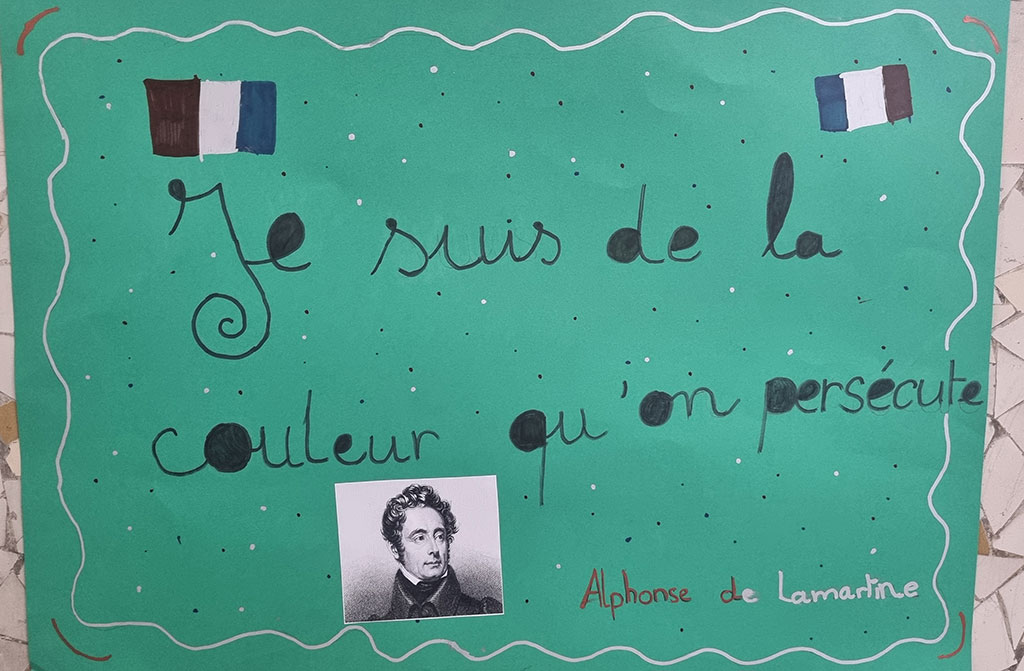 Je suis de la
couleur qu'on persécute
Alphonse de Lamartine